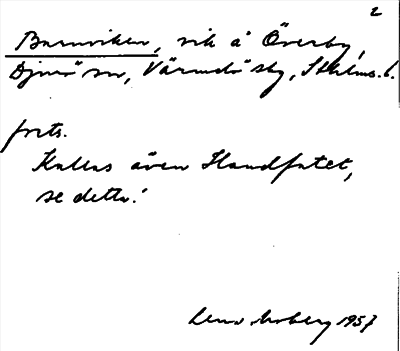 2
Barnviken, vik å Överby,
Djurö sn, Värmdö skg, Sthlms l.
forts.
Kallas även Handfatet,
se detta!
Lena Moberg 1957